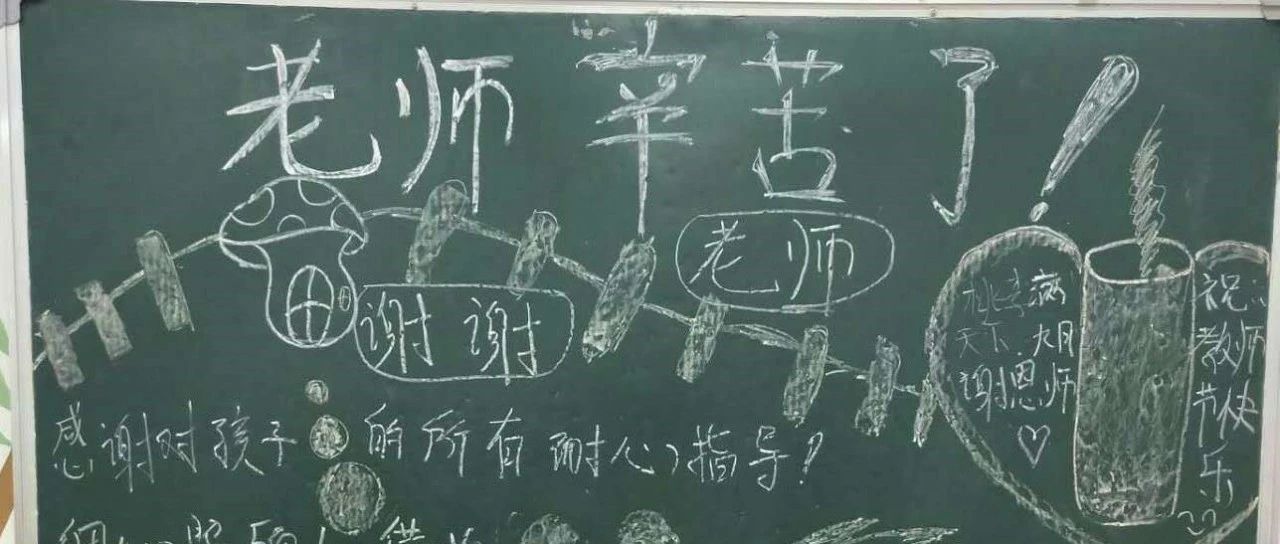 老师辛苦了!
谢谢
老师
天下
谢恩师
祝
教师
节快
乐
感谢对孩子的所有耐心指导!